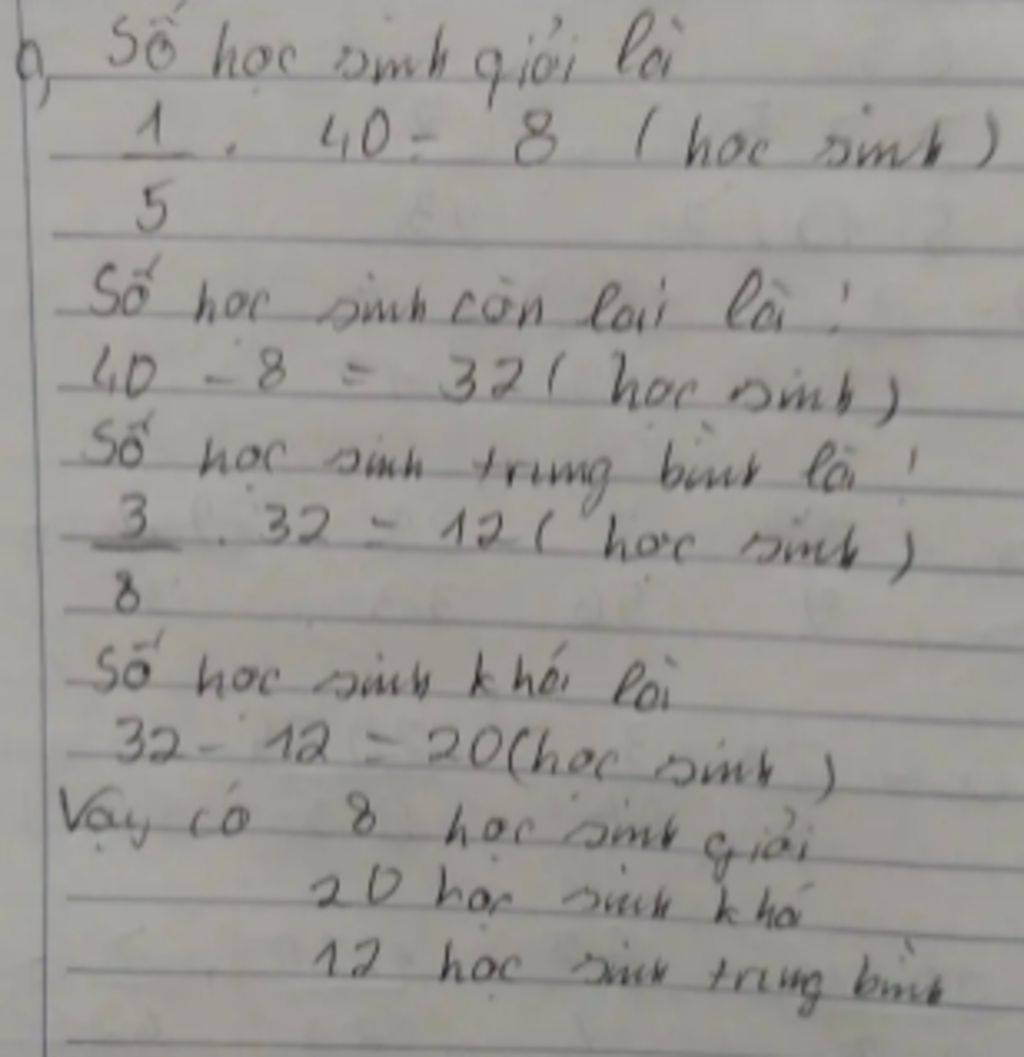 a, Số học sinh giỏi là
1/5 . 40 = 8 (học sinh)
Số học sinh còn lại là:
40 - 8 = 32 (học sinh)
Số học sinh trung bình là:
3/8 . 32 = 12 (học sinh)
Số học sinh khối là
32 - 12 = 20 (học sinh)
Vậy có 8 học sinh giỏi
20 học sinh khá
12 học sinh trung bình